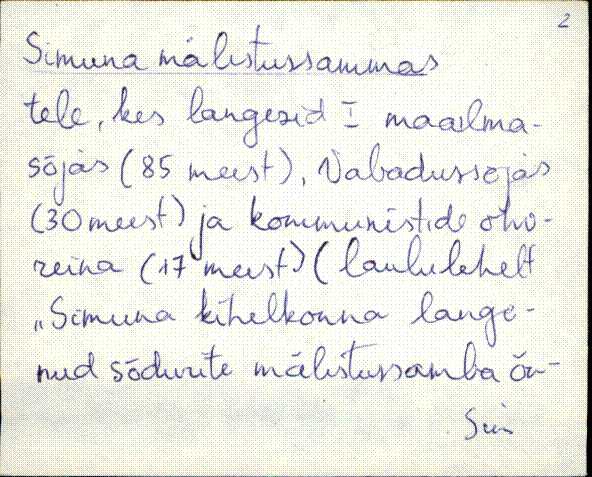 2
Simuna mälestussammas
tele, kes langesid I maailma-
sõjas (85 meest), Vabadussõjas
(30 meest) ja kommunistide ohv-
reina (17 meest) (laululehelt
„Simuna kihelkonna lange-
nud sõdurite mälestussamba õn-